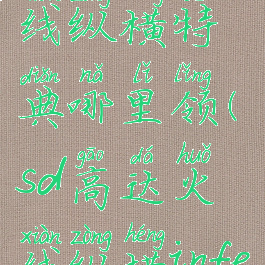 线纵横特
diǎn nǎ lǐ lǐng
典哪里领(
gāo dá huǒ
sd高达火
xiàn zòng héng
线纵横infe